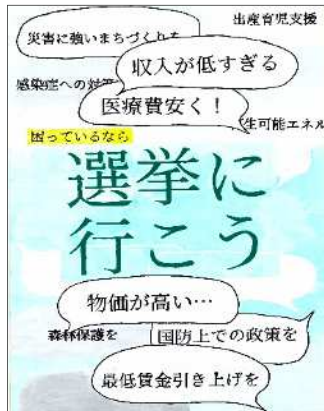 出産育児支援
災害に強いまちづくりを
収入が低すぎる
感染症への対策
医療費安く！
生可能エネル
困っているなら
選挙に
行こう
物価が高い…
森林保護を
国防上での政策を
最低賃金引き上げを